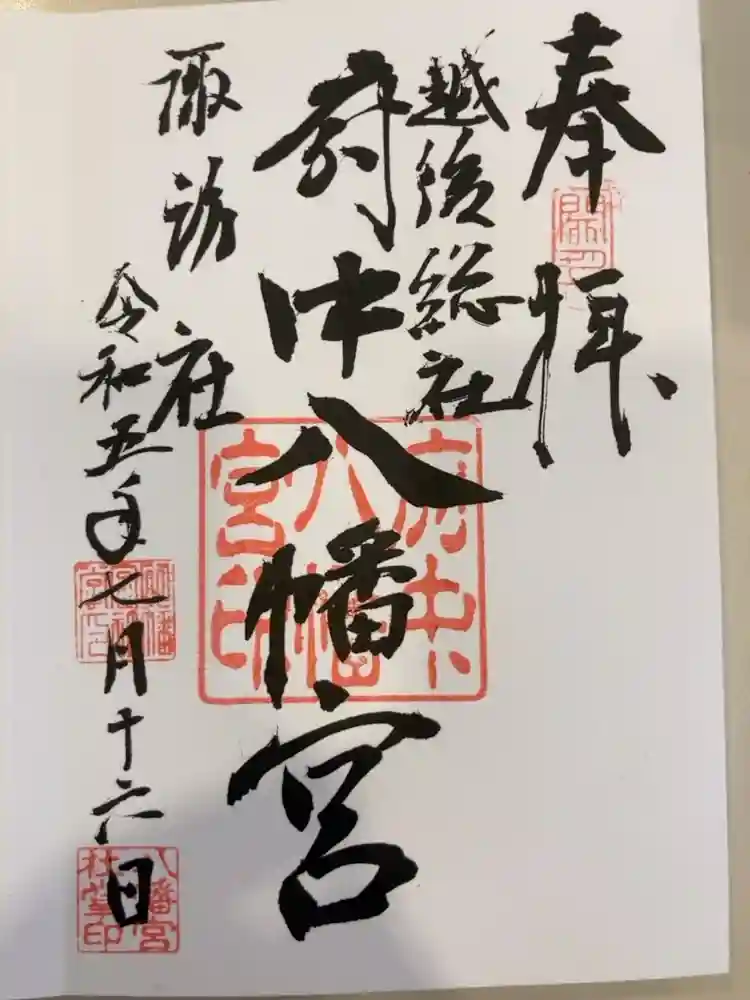 奉拝
越後総社
府中八幡宮
諏訪社
令和五年七月十六日
府中
八幡
宮印
八幡宮
社掌印